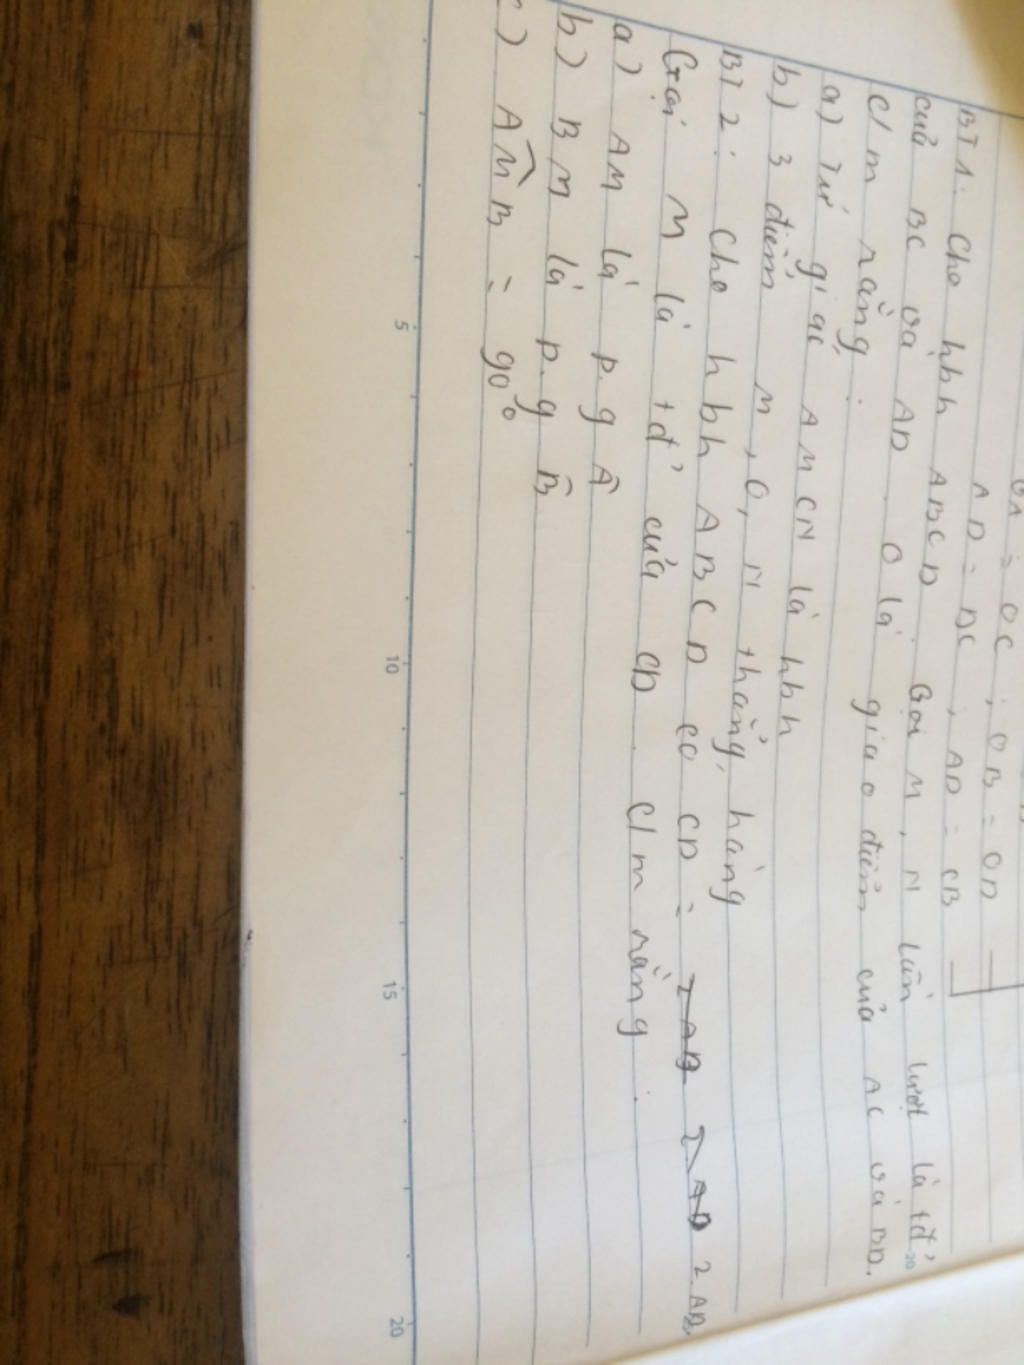 OA = OC ; OB = OD
AD = BC , AD = CB
BT1. Cho hbh ABCD. Gọi M, N lần lượt là tđ'
của BC và AD. O là giao điểm của AC và BD.
C/m rằng:
a) Tứ giác AMCN là hbh
b) 3 điểm M, O, N thẳng hàng
BT2: Cho hbh ABCD có CD = 2AB 2AD 2AD.
Gọi M là tđ' của CD. C/m rằng:
a) AM là p.g Â
b) BM là p.g B̂
c) AM̂B = 90°
5
10
15
20
20